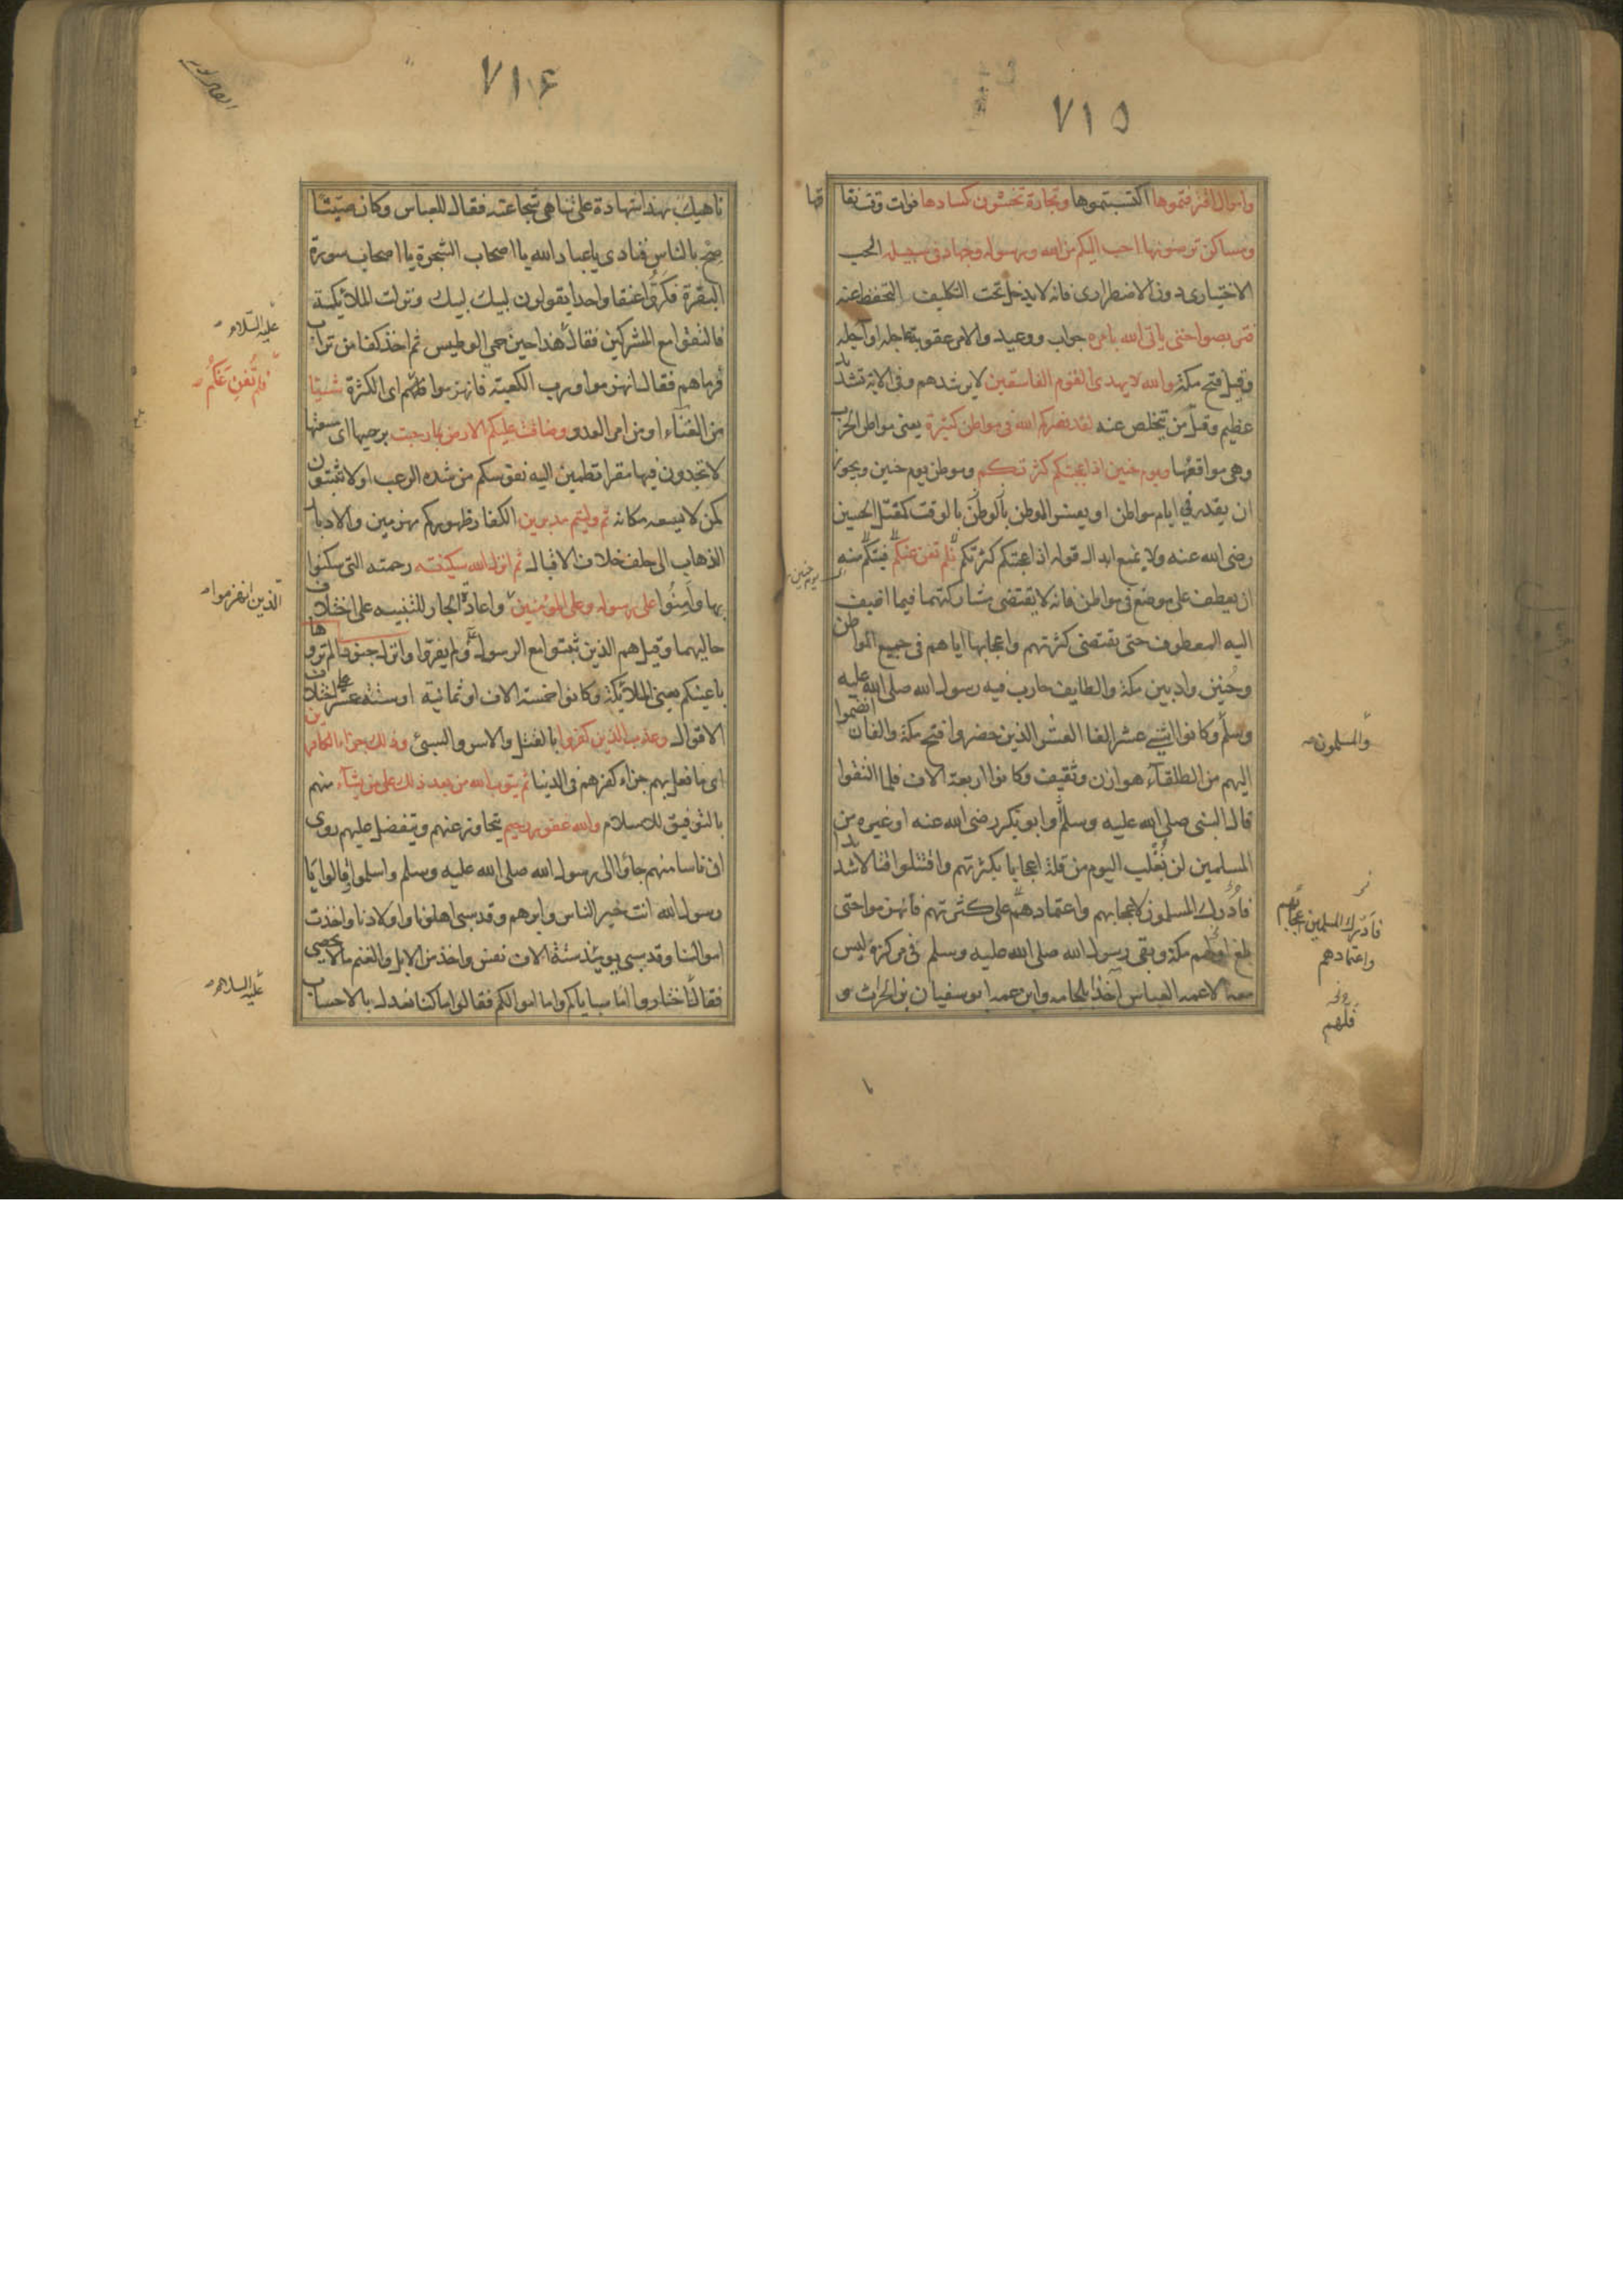 ٧١٥
واموال اقترفتموها اكتسبتموها وتجارة تخشون كسادها فوات وقت نفا قها
ومساكن ترضونها احب اليكم من الله ورسوله وجهاد فى سبيله الحب
الاختيارى دون الاضطرارى فانه لا يدخل تحت التكليف التحفظ عنه
فتربصوا حتى ياتى الله بامره جواب ووعيد والامر عقوبة عاجلة او آجلة
وقيل فتح مكة والله لا يهدى القوم الفاسقين لا يرشدهم وفى الاية تشديد
عظيم وقل من يتخلص عنه لقد نصركم الله فى مواطن كثيرة يعنى مواطن الحرب
وهى مواقعها ويوم حنين اذ اعجبتكم كثرتكم وموطن يوم حنين ويجوز
ان يقدر فى ايام مواطن او يفسر الموطن بالوقت كمقتل الحسين
رضى الله عنه ولا يمنع ابدال قوله اذ اعجبتكم كثرتكم فلم تغن عنكم منه
يوم حنين
ان يعطف على موضع فى مواطن فانه لا يقتضى تشاركهما فيما اضيف
اليه المعطوف حتى يقتضى كثرتهم واعجابها اياهم فى جميع المواطن
وحنين واد بين مكة والطايف حارب فيه رسول الله صلى الله عليه
وسلم وكانوا اثنى عشر الفا العشرة الذين حضروا فتح مكة والفان انضموا
والمسلمون
اليهم من الطلقآء هوازن وثقيف وكانوا اربعة الاف فلما التقوا
قال النبى صلى الله عليه وسلم او ابو بكر رضى الله عنه او غيره من
المسلمين لن نغلب اليوم من قلة اعجابا بكثرتهم واقتتلوا قتالا شديدا
فادرك المسلمون اعجابهم واعتمادهم على كثرتهم فانهزموا حتى
فادرك المسلمين اعجابهم
واعتمادهم
بلغ فلهم مكة وبقى رسول الله صلى الله عليه وسلم فى مركزه ليس
معه الا عمه العباس آخذا بلجامه وابن عمه ابو سفيان بن الحراث و
فلهم
٧١٦
ناهيك بهذا شهادة على تناهى شجاعته فقال للعباس وكان صيتا
صح بالناس فنادى يا عباد الله يا اصحاب الشجرة يا اصحاب سورة
البقرة فكروا عنقا واحدا يقولون لبيك لبيك ونزلت الملائكة
فالتقوا مع المشركين فقال هذا حين حمى الوطيس ثم اخذ كفا من تراب
عليه السلام
فرماهم فقال انهزموا ورب الكعبة فانهزموا اى الكثرة شيئا
فلم تغن عنكم
من الغنآء او من امر العدو وضاقت عليكم الارض بما رحبت برحبها اى سعتها
لا تجدون فيها مقرا تطمئن اليه نفوسكم من شده الرعب او لا تثبتون
كمن لا يسعه مكانه ثم وليتم مدبرين الكفار ظهوركم منهزمين والادبار
الذهاب الى خلف خلاف الاقبال ثم انزل الله سكينته رحمته التى سكنوا
بها وآمنوا على رسوله وعلى المؤمنين واعادة الجار للتنبيه على اختلاف
الذين انهزموا
حاليهما وقيل هم الذين ثبتوا مع الرسول ولم يفروا وانزل جنودا لم تروها
باعينكم يعنى الملائكة وكانوا خمسة الاف او ثمانية او ستة عشر على اختلاف
الاقوال وعذب الذين كفروا بالقتل والاسر والسبى وذلك جزاء الكافرين
اى ما فعل بهم جزاء كفرهم فى الدنيا ثم يتوب الله من بعد ذلك على من يشآء منهم
بالتوفيق للاسلام والله غفور رحيم يتجاوز عنهم ويتفضل عليهم روى
ان ناسا منهم جاؤا الى رسول الله صلى الله عليه وسلم واسلموا وقالوا يا
رسول الله انت خير الناس وابرهم وقد سبى اهلونا واولادنا واخذت
اموالنا وقد سبى يومئذ ستة الاف نفس واخذ من الابل والغنم ما لا يحصى
فقال اختاروا اما سباياكم واما اموالكم فقالوا ما كنا نعدل بالاحساب
عليه السلام